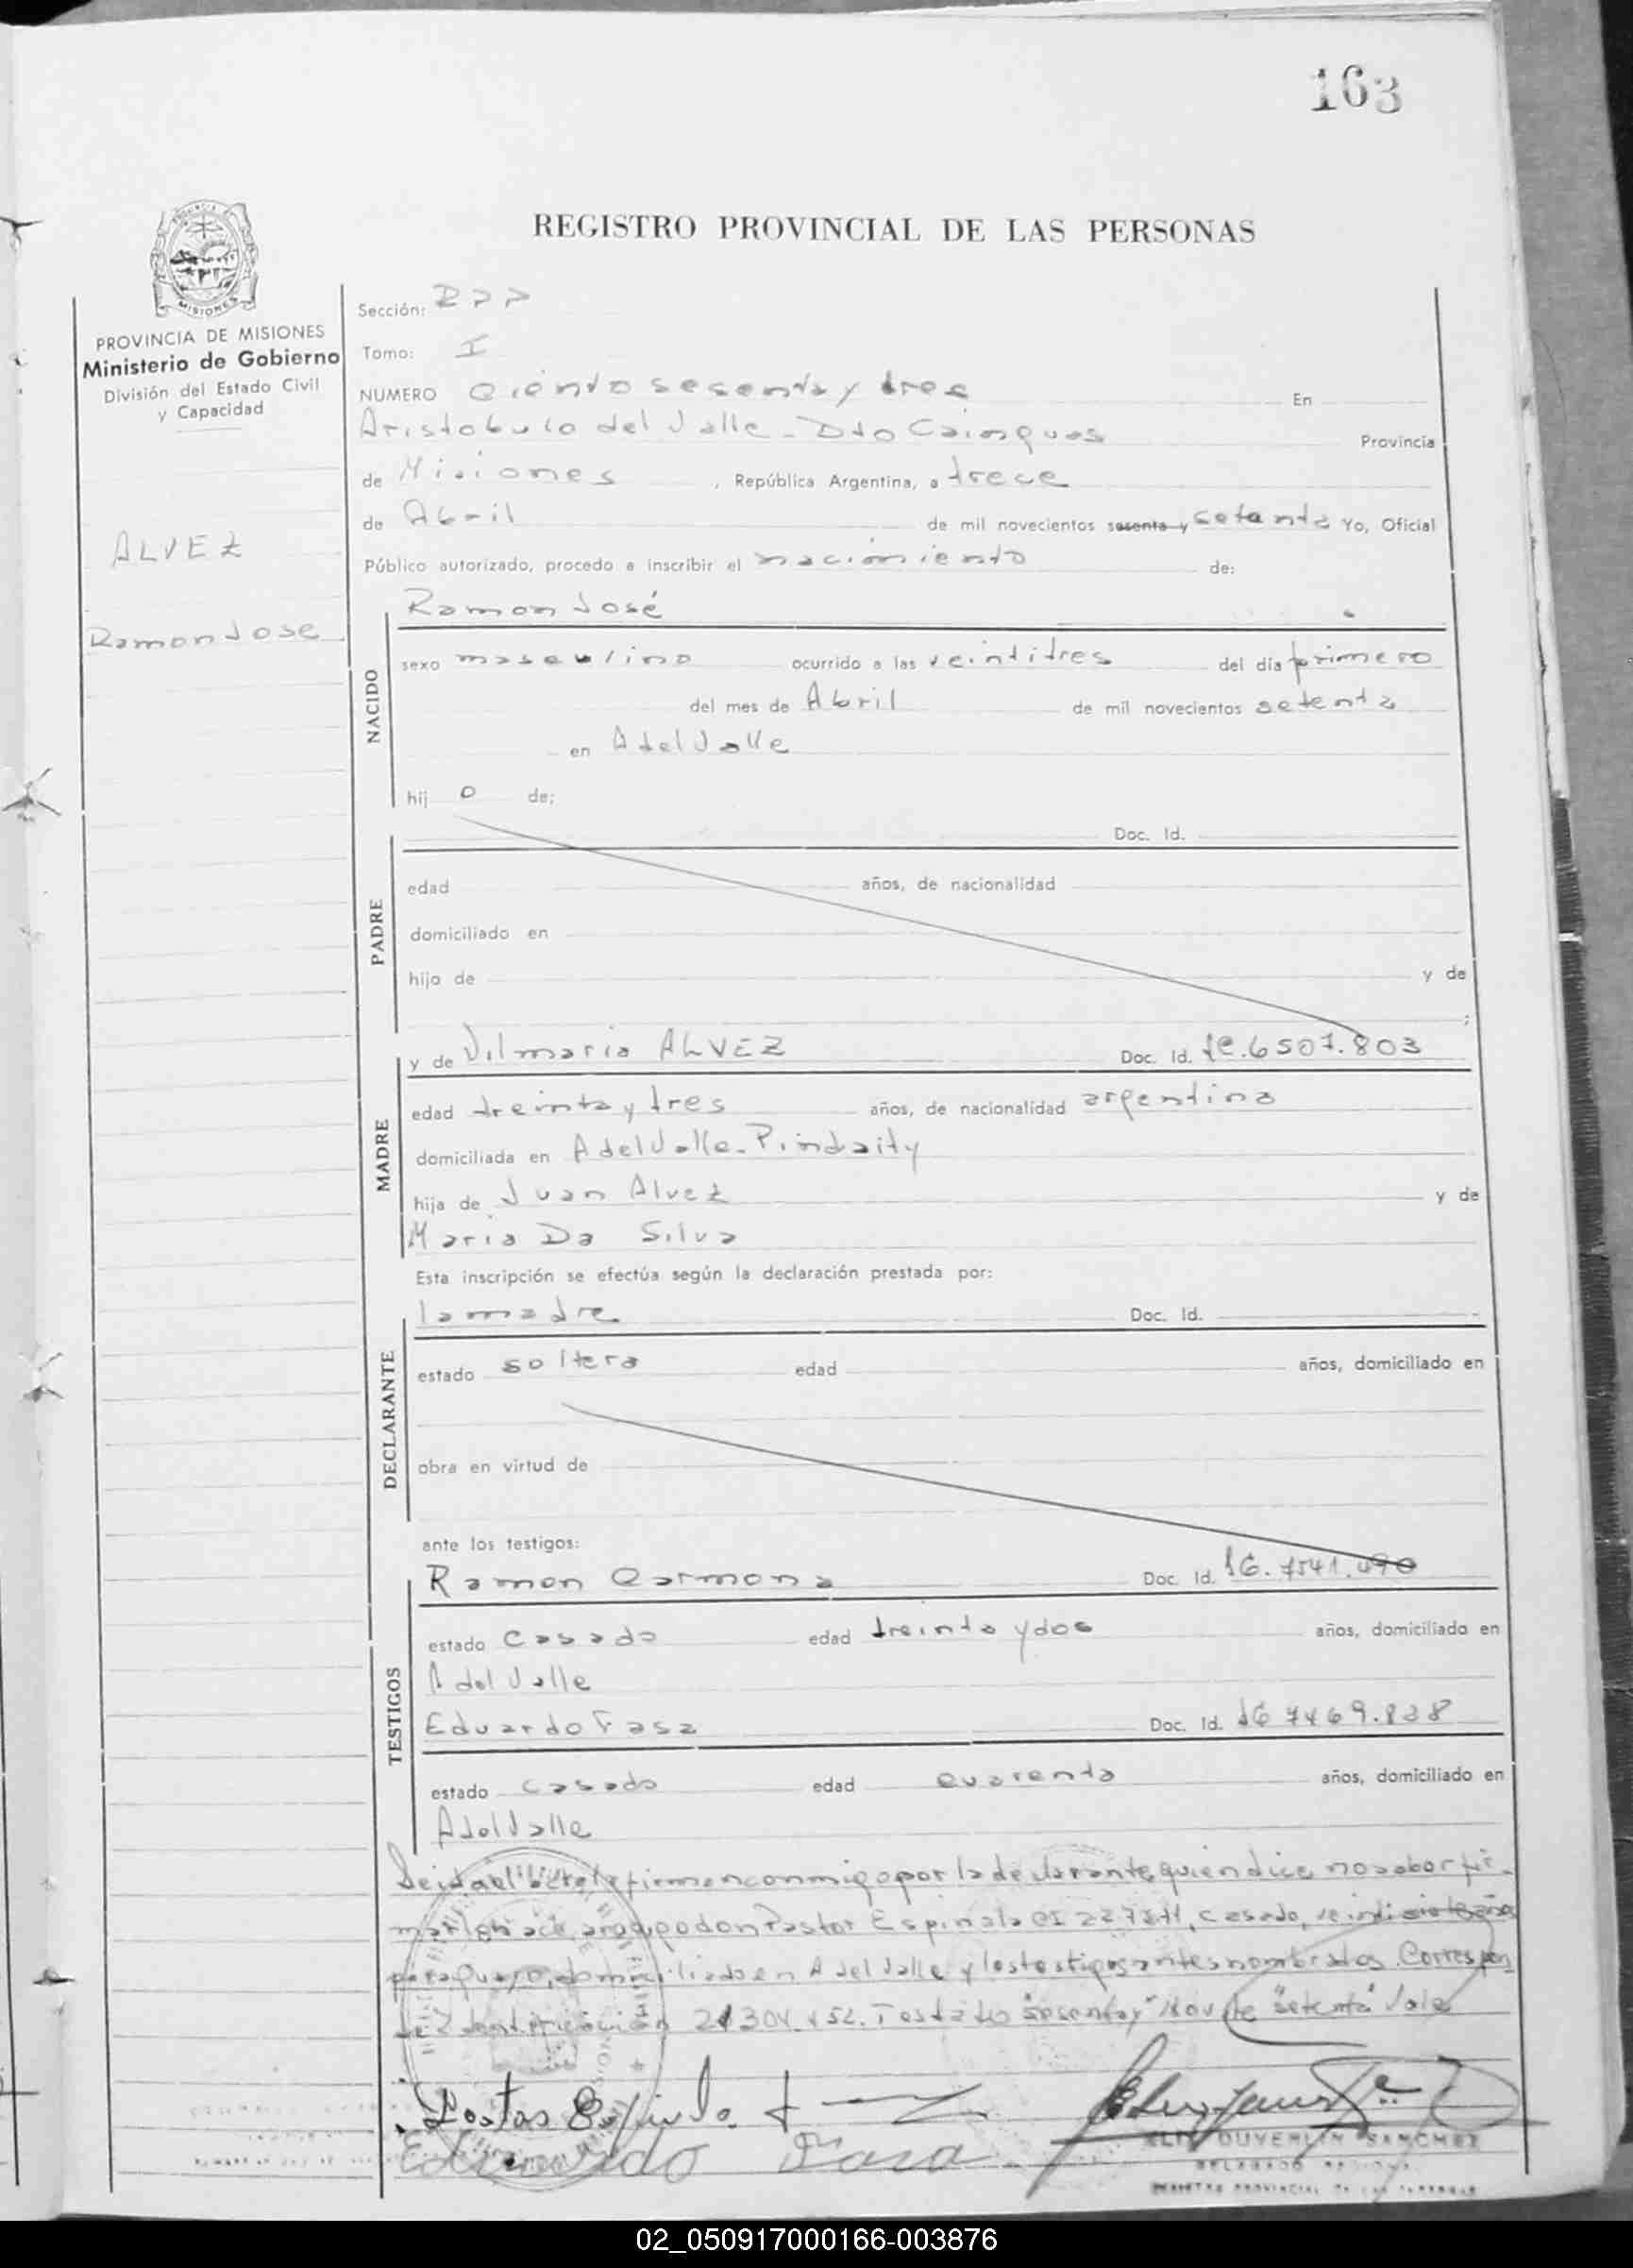 163
REGISTRO PROVINCIAL DE LAS PERSONAS
MISIONES
PROVINCIA DE MISIONES
Ministerio de Gobierno
División del Estado Civil
y Capacidad
ALVEZ
Ramon Jose
Sección:
Tomo: I
NUMERO Ciento sesenta y tres En
Aristobulo del Valle - Dto Cainguas Provincia
de Misiones, República Argentina, a trece
de Abril de mil novecientos sesenta y setenta Yo, Oficial
Público autorizado, procedo a inscribir el nacimiento de:
NACIDO
Ramon José
sexo masculino ocurrido a las veintitres del día primero
del mes de Abril de mil novecientos setenta
en A del Valle
hij o de;
PADRE
Doc. Id.
edad años, de nacionalidad
domiciliado en
hijo de y de
;
MADRE
y de Vilmaria ALVEZ Doc. Id. 6507.803
edad treinta y tres años, de nacionalidad argentina
domiciliada en A del Valle - Pindaity
hija de Juan Alvez y de
Maria Da Silva
Esta inscripción se efectúa según la declaración prestada por:
DECLARANTE
la madre Doc. Id.
estado soltera edad años, domiciliado en
obra en virtud de
ante los testigos:
TESTIGOS
Ramon Carmona Doc. Id. 7541.490
estado casado edad treinta y dos años, domiciliado en
A del Valle
Eduardo Fasa Doc. Id. 7469.838
estado casado edad cuarenta años, domiciliado en
A del Valle
firman conmigo por la declarante quien dice no saber fir-
mar lo hace a ruego don Pastor Espinola CI casado,
paraguayo, domiciliado en A del Valle y los testigos antes nombrados. Correspon
de identificación 21304452. Testado "sesenta y" "setenta" Vale
Eduardo Fasa
DUVERLIN SANCHEZ
02_050917000166-003876